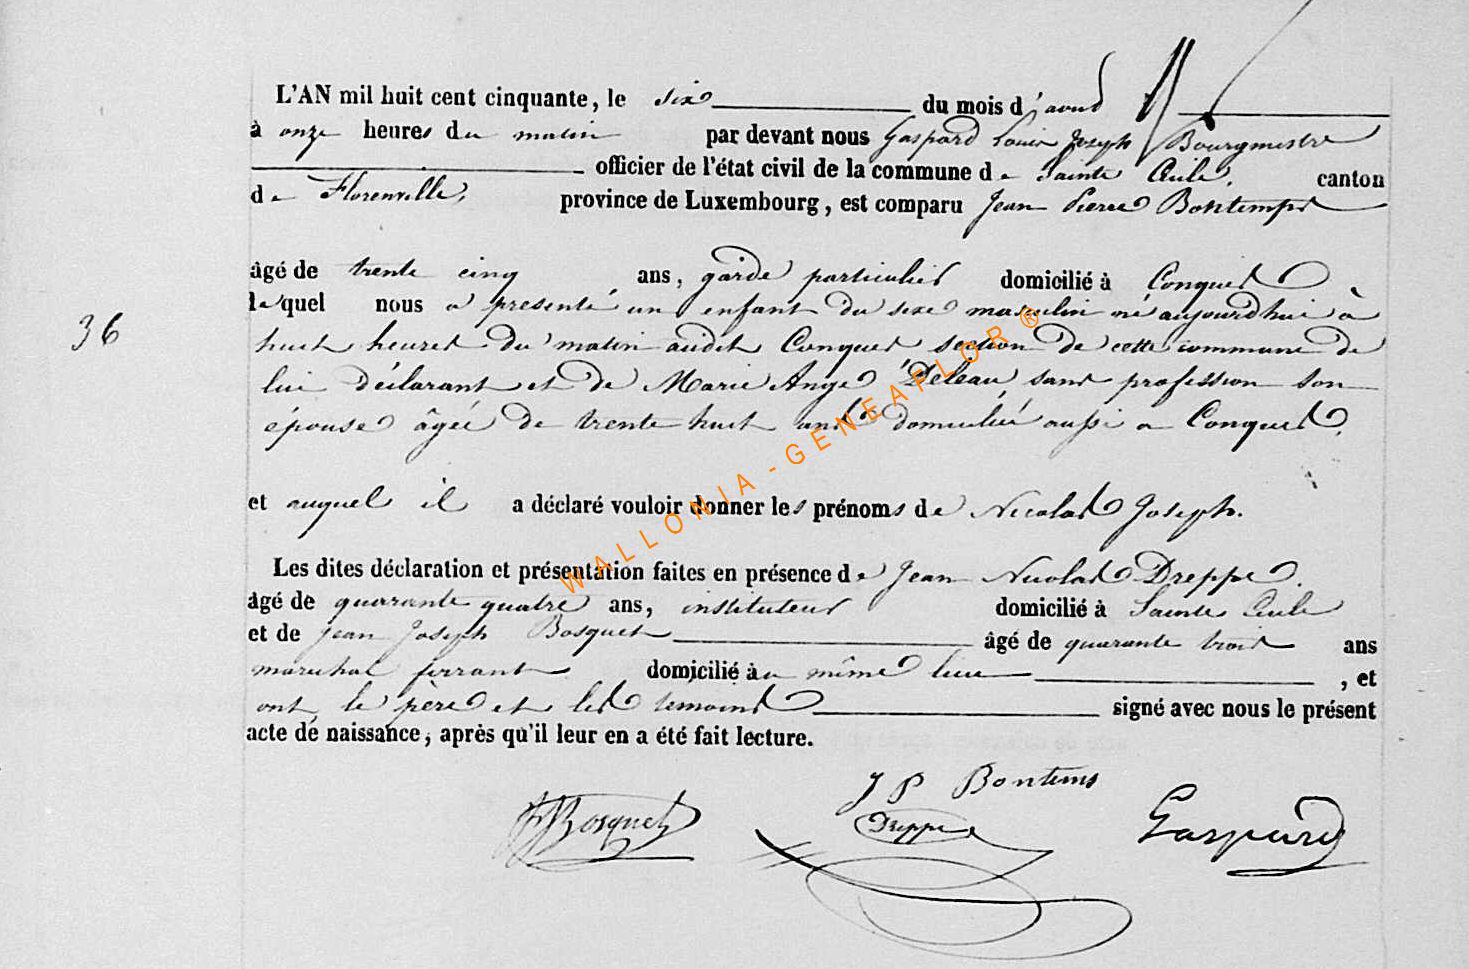 L'AN mil huit cent cinquante, le six du mois d'aout
à onze heures du matin par devant nous Gaspard Louis Joseph Bourgmestre
officier de l'état civil de la commune de Sainte Cécile, canton
de Florenville, province de Luxembourg, est comparu Jean Pierre Bontemps
âgé de trente cinq ans, garde particulier domicilié à Conques
lequel nous a presenté un enfant du sexe masculin né aujourdhui à
huit heures du matin audit Conques section de cette commune de
36
lui déclarant et de Marie Ange Deleau sans profession son
épouse âgée de trente huit ans domiciliée aussi a Conques,
et auquel il a déclaré vouloir donner les prénoms de Nicolas Joseph.
WALLONIA - GENEAFLOR ®
Les dites déclaration et présentation faites en présence de Jean Nicolas Dreppe.
âgé de quarante quatre ans, instituteur domicilié à Sainte Cécile
et de Jean Joseph Bosquet âgé de quarante trois ans
marechal ferrant domicilié au même lieu, et
ont le père et les temoins signé avec nous le présent
acte de naissance, après qu'il leur en a été fait lecture.
J P Bontems
JJBosquet Dreppe Gaspard